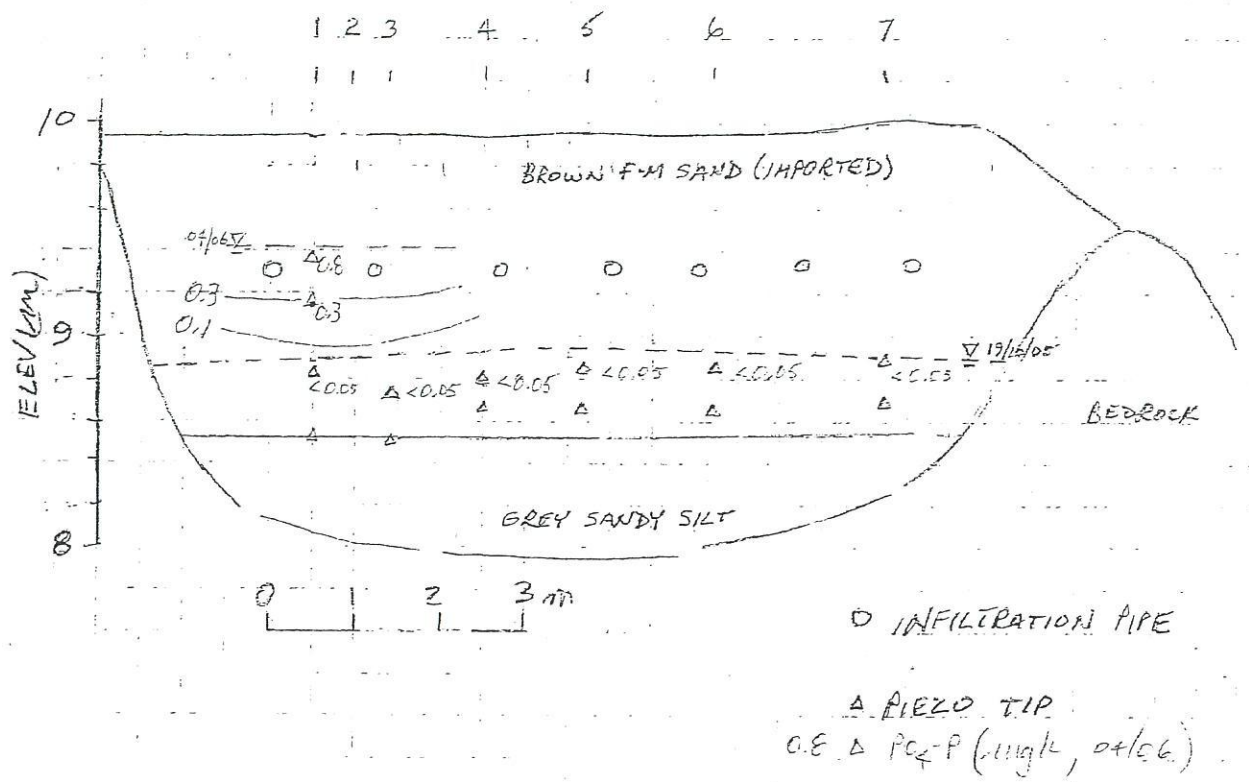 1 2 3 4 5 6 7
10
BROWN F-M SAND (IMPORTED)
04/06
0.8
0.3
0.3
0.1
9
ELEV (m)
<0.05 <0.05 <0.05 <0.05 <0.05 <0.05
BEDROCK
GREY SANDY SILT
8
0 1 2 3 m
O INFILTRATION PIPE
△ PIEZO TIP
0.8 △ PO4-P (mg/L, 04/06)